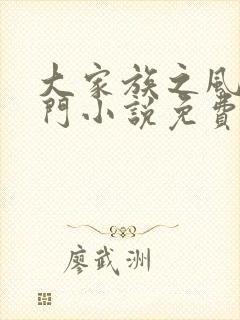 大家族之風
門小說免費
廖武洲